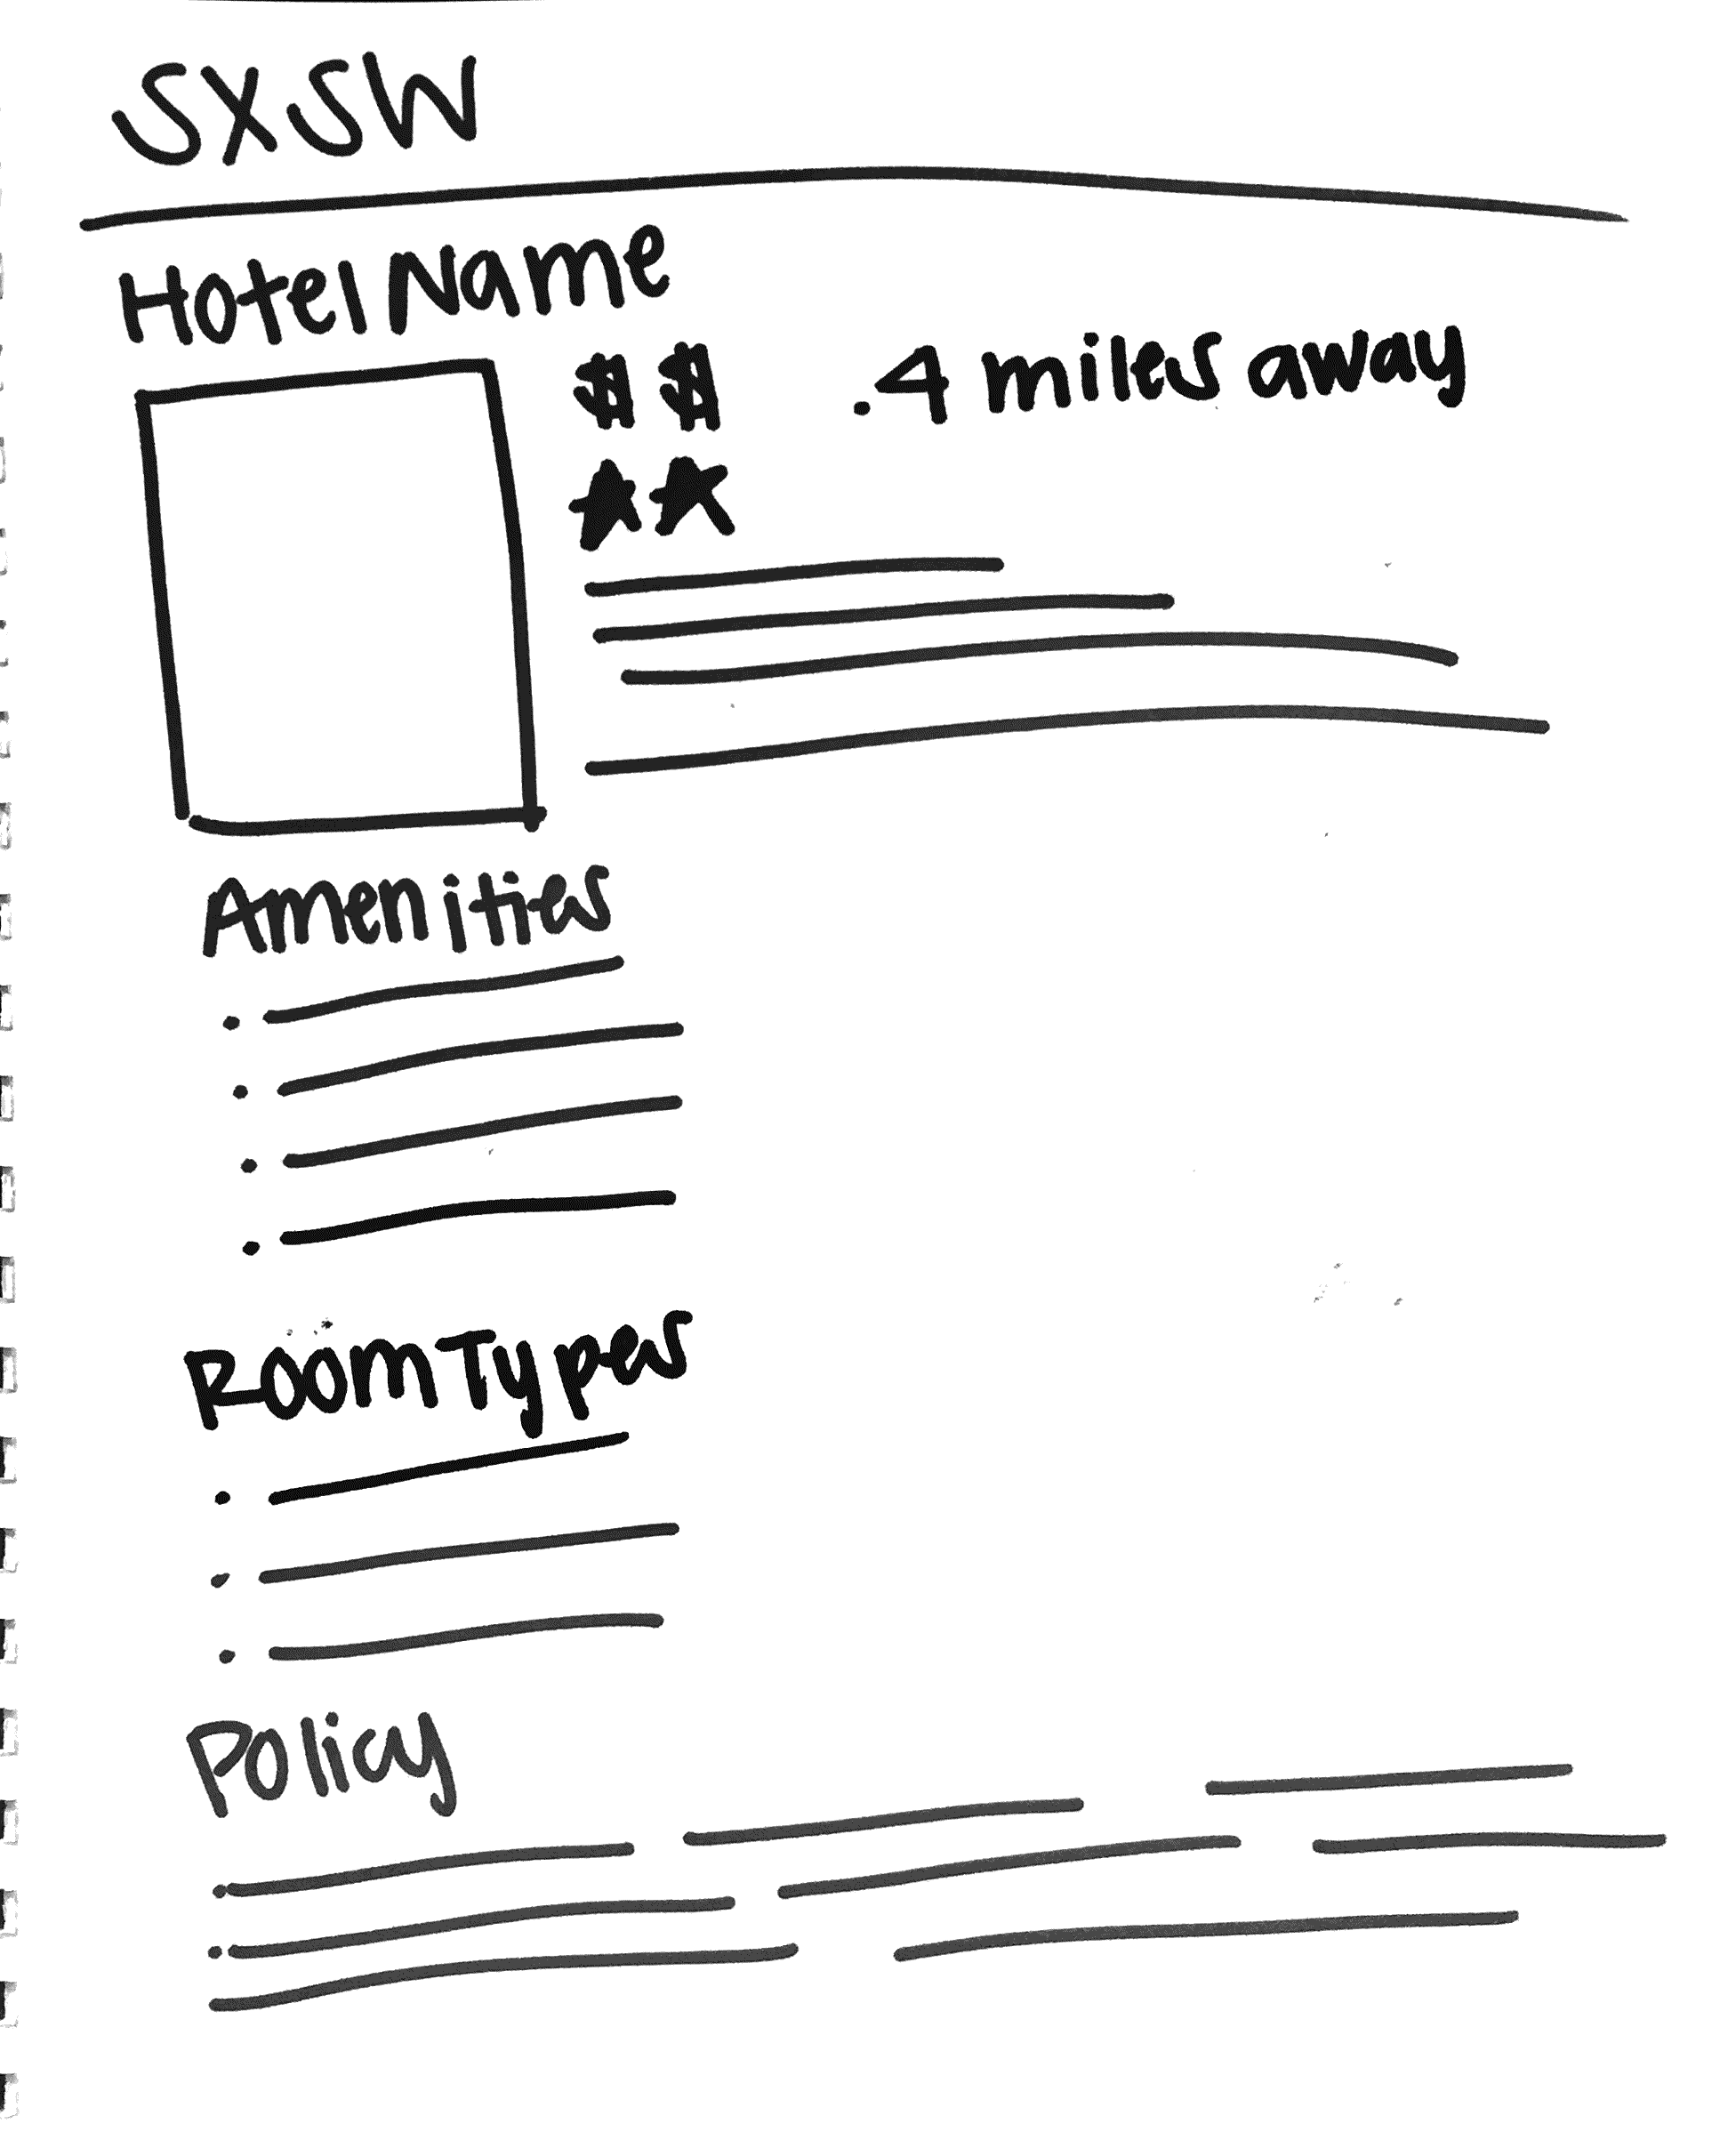 SXSW
Hotel Name
$$ .4 miles away
★★
Amenities
Room Types
Policy